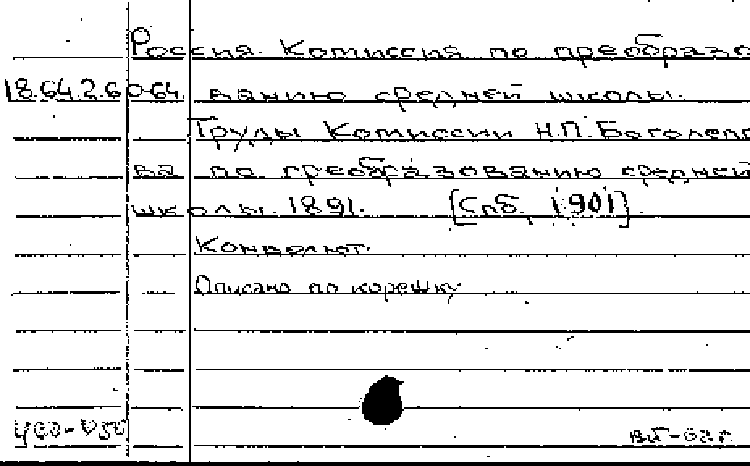 Россия. Комиссия по преобразо
18.64.2.60-64. ванию средней школы.
Труды Комиссии Н.П. Боголепо
ва по преобразованию средней
школы. 1891. [Спб, 1901]
Конволют.
Описано по корешку